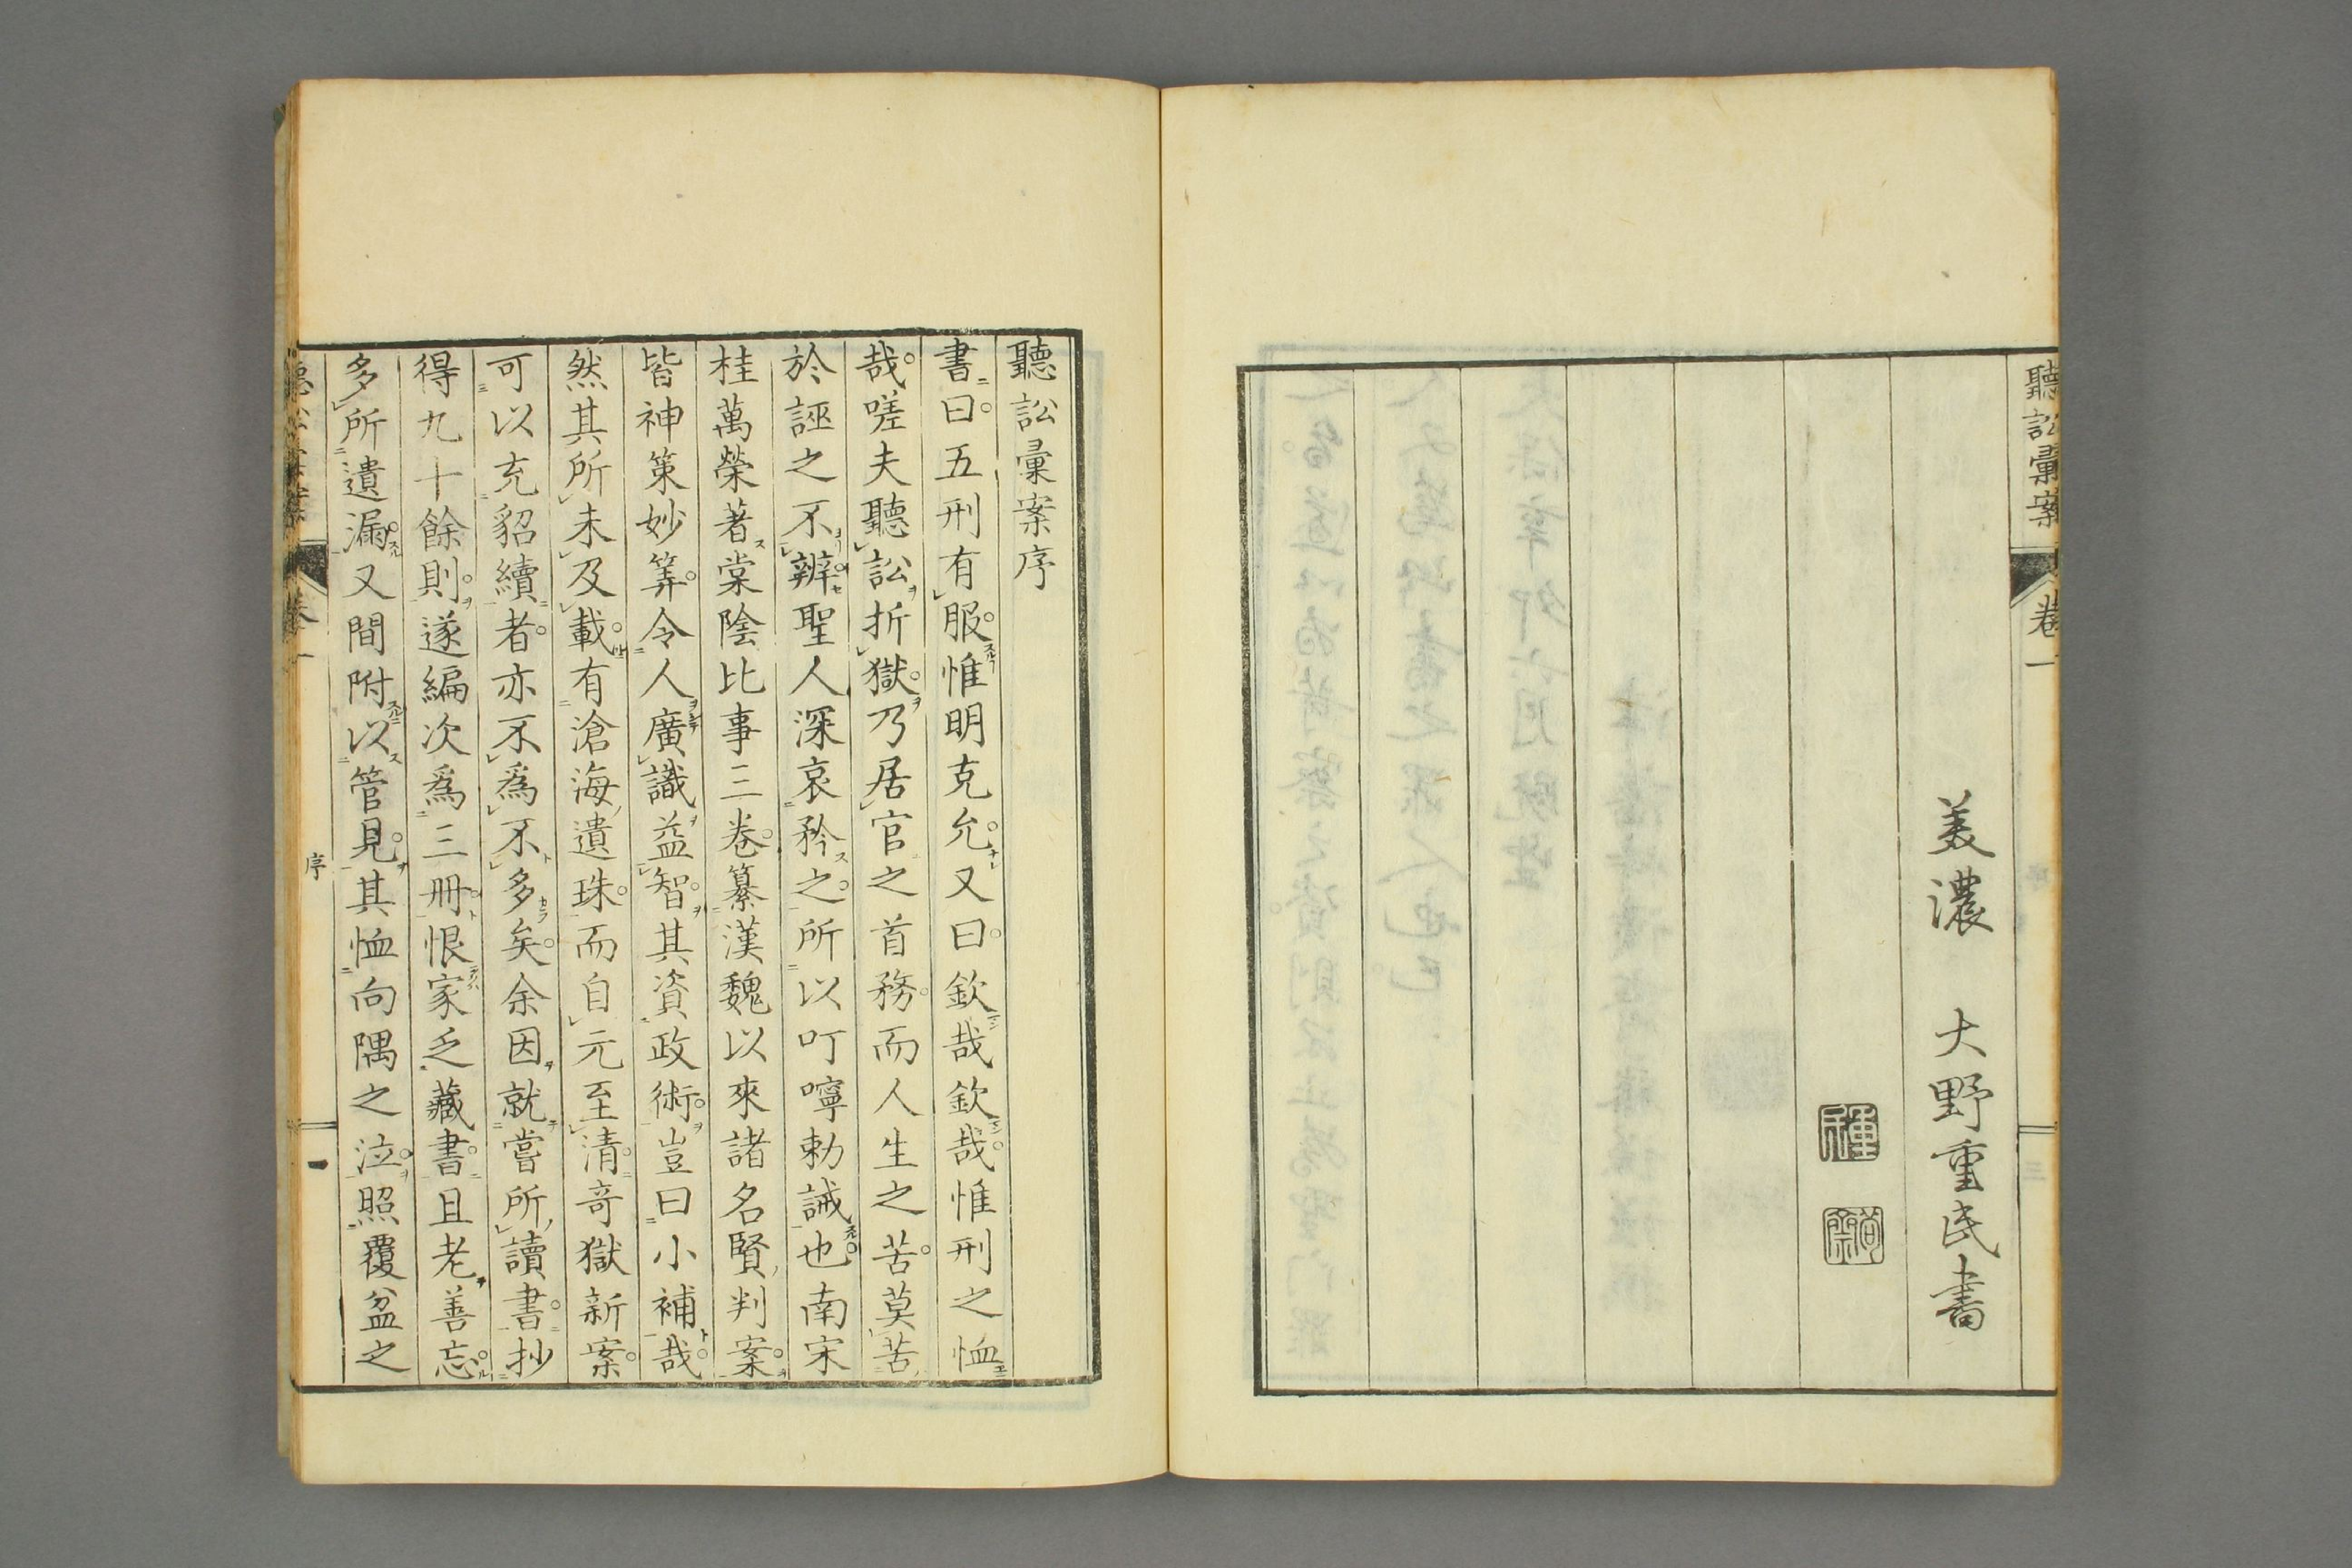 聽訟彙案
卷一
三
美濃　大野重民書
聽訟彙案序
書曰。五刑有服。惟明克允。又曰。欽哉欽哉。惟刑之恤
哉。嗟夫聽訟折獄。乃居官之首務。而人生之苦。莫苦
於誣之不辨。聖人深哀矜之。所以叮嚀勅誡也。南宋
桂萬榮著棠陰比事三卷。纂漢魏以來諸名賢判案。
皆神策妙筭。令人廣識益智。其資政術。豈曰小補哉。
然其所未及載。有滄海遺珠。而自元至清。奇獄新案。
可以充貂續者。亦不爲不多矣。余因就嘗所讀書。抄
得九十餘則。遂編次爲三冊。恨家乏藏書。且老善忘。
多所遺漏。又間附以管見。其恤向隅之泣。照覆盆之
卷一
序
一